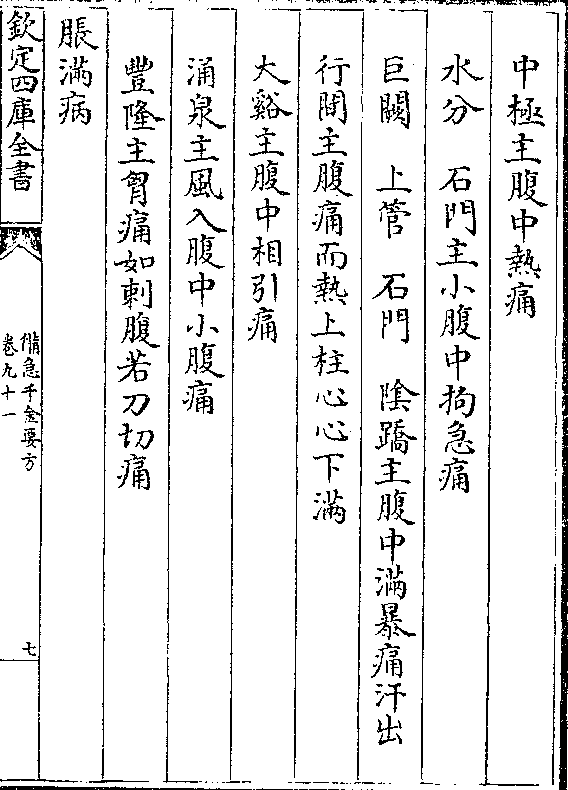 中極主腹中熱痛
水分　石門主小腹中拘急痛
巨闕　上管　石門　陰蹻主腹中滿暴痛汗出
行間主腹痛而熱上柱心心下滿
大谿主腹中相引痛
涌泉主風入腹中小腹痛
豐隆主胷痛如刺腹若刀切痛
脹滿病
欽定四庫全書
備急千金要方
卷九十一
七